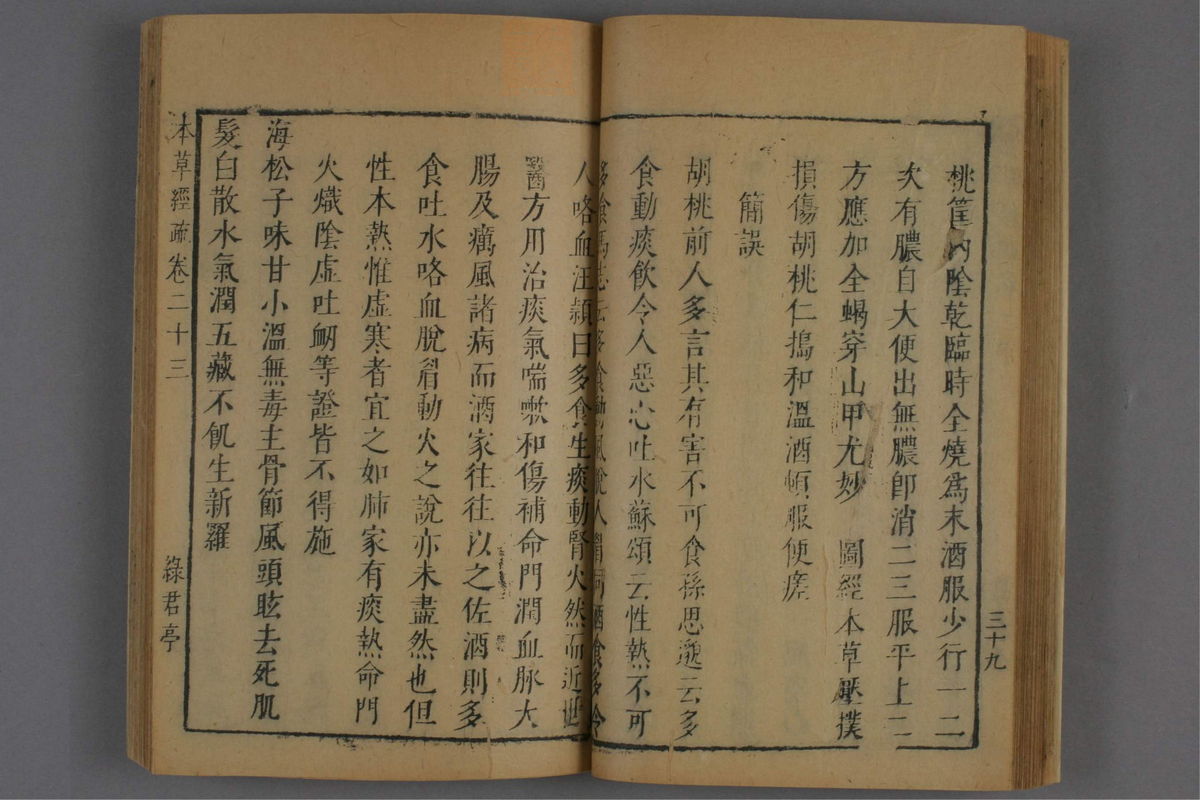 三十九
桃筐內陰乾臨時全燒為末酒服少行一二
次有膿自大便出無膿卽消二三服平上二
方應加全蝎穿山甲尤妙　圖經本草壓撲
損傷胡桃仁搗和溫酒頓服便瘥
簡誤
胡桃前人多言其有害不可食孫思邈云多
食動痰飲令人惡心吐水蘇頌云性熱不可
多食馬志云多食動風脫人眉同酒食多令
人咯血汪頴曰多食生痰動腎火然而近世
醫方用治痰氣喘嗽和傷補命門潤血脉大
腸及癘風諸病而酒家往往以之佐酒則多
食吐水咯血脫眉動火之說亦未盡然也但
性本熱惟虛寒者宜之如肺家有痰熱命門
火熾陰虛吐衂等證皆不得施
海松子味甘小溫無毒主骨節風頭眩去死肌
髮白散水氣潤五藏不飢生新羅
本草經疏卷二十三
綠君亭